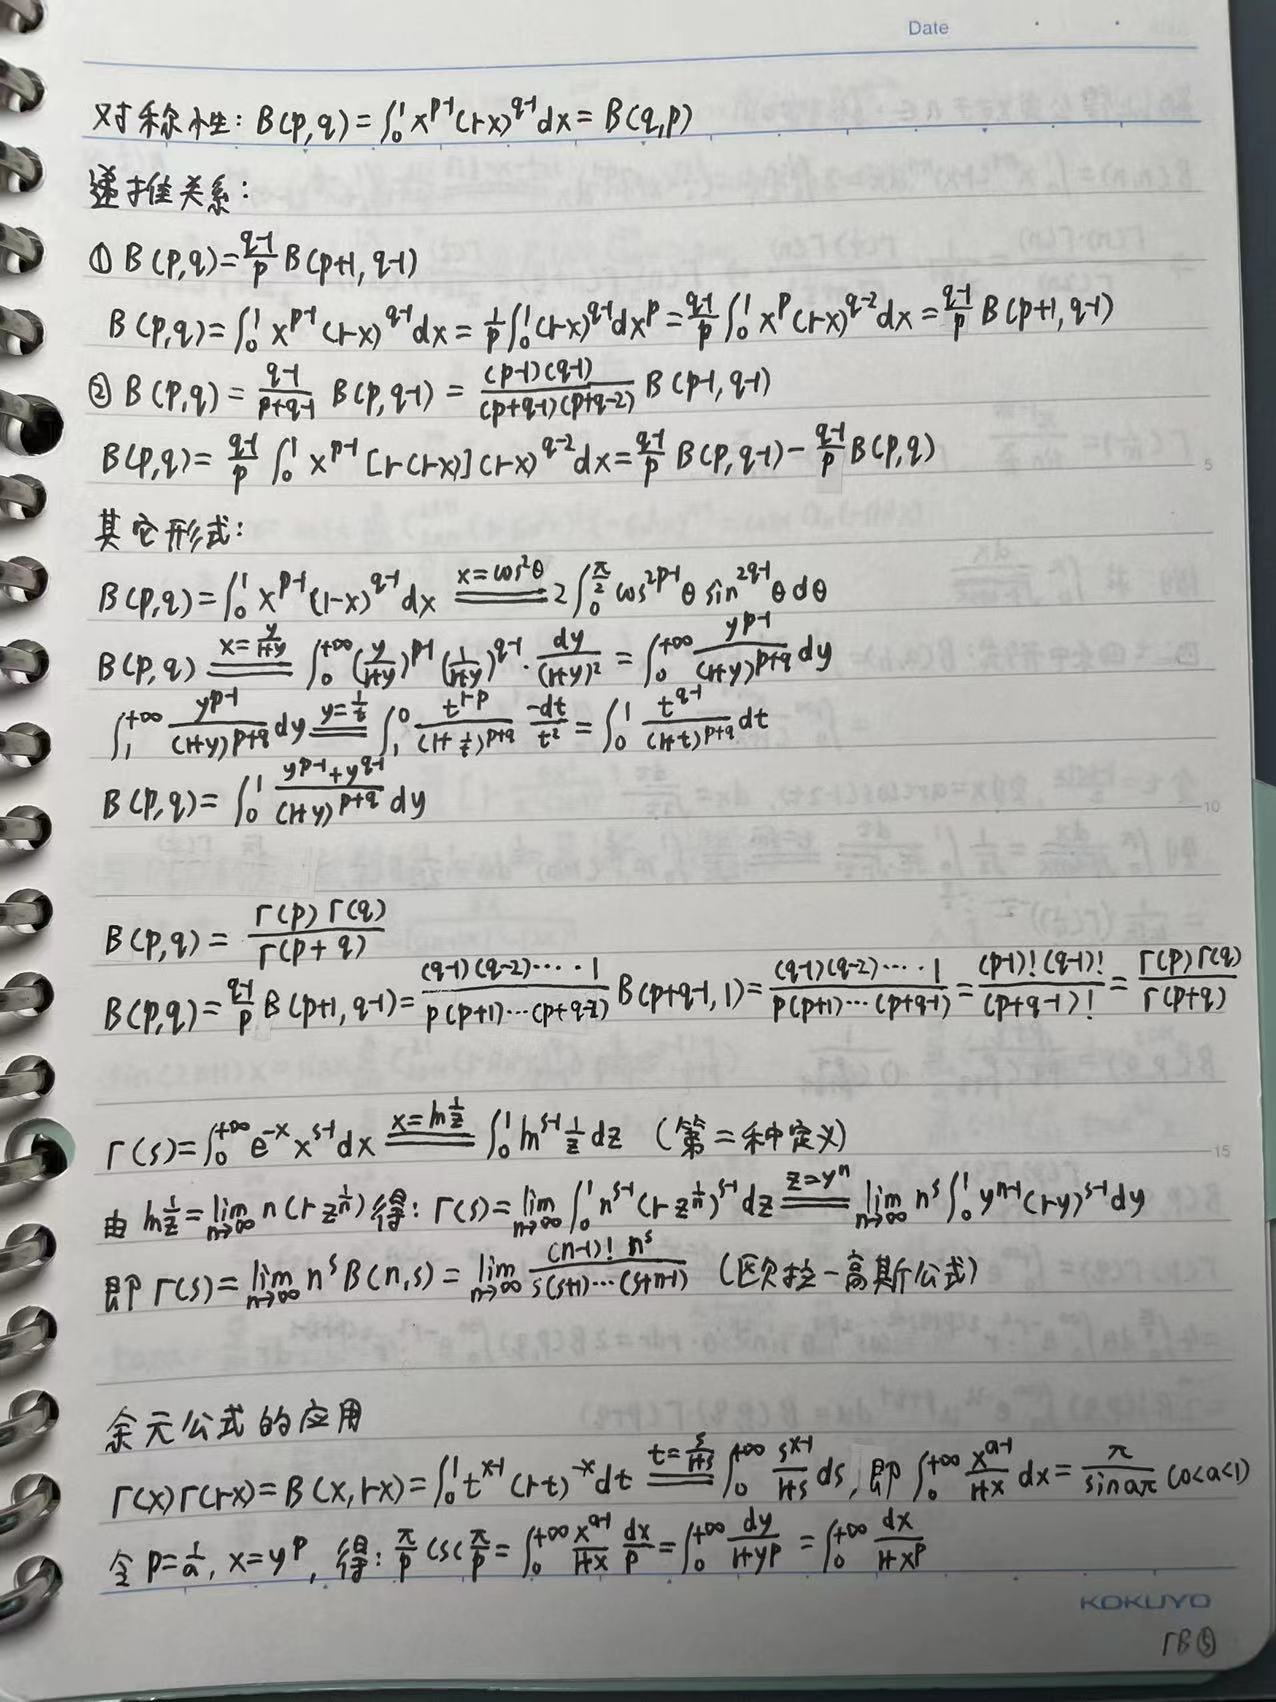 Date
对称性: B(p,q)=∫₀¹ x^{p-1}(1-x)^{q-1}dx=B(q,p)
递推关系:
① B(p,q)=\frac{q-1}{p}B(p+1,q-1)
B(p,q)=∫₀¹ x^{p-1}(1-x)^{q-1}dx=\frac{1}{p}∫₀¹(1-x)^{q-1}dx^p=\frac{q-1}{p}∫₀¹ x^p(1-x)^{q-2}dx=\frac{q-1}{p}B(p+1,q-1)
② B(p,q)=\frac{q-1}{p+q-1}B(p,q-1)=\frac{(p-1)(q-1)}{(p+q-1)(p+q-2)}B(p-1,q-1)
B(p,q)=\frac{q-1}{p}∫₀¹ x^{p-1}[1-(1-x)](1-x)^{q-2}dx=\frac{q-1}{p}B(p,q-1)-\frac{q-1}{p}B(p,q)
5
其它形式:
B(p,q)=∫₀¹ x^{p-1}(1-x)^{q-1}dx \xlongequal{x=cos²θ} 2∫_0^{\frac{π}{2}} cos^{2p-1}θ sin^{2q-1}θdθ
B(p,q) \xlongequal{x=\frac{y}{1+y}} ∫_0^{+∞}(\frac{y}{1+y})^{p-1}(\frac{1}{1+y})^{q-1}·\frac{dy}{(1+y)^2}=∫_0^{+∞}\frac{y^{p-1}}{(1+y)^{p+q}}dy
∫_1^{+∞}\frac{y^{p-1}}{(1+y)^{p+q}}dy \xlongequal{y=\frac{1}{t}} ∫_1^0\frac{t^{1-p}}{(1+\frac{1}{t})^{p+q}}\frac{-dt}{t^2}=∫_0^1\frac{t^{q-1}}{(1+t)^{p+q}}dt
B(p,q)=∫_0^1\frac{y^{p-1}+y^{q-1}}{(1+y)^{p+q}}dy
10
B(p,q)=\frac{Γ(p)Γ(q)}{Γ(p+q)}
B(p,q)=\frac{q-1}{p}B(p+1,q-1)=\frac{(q-1)(q-2)⋯·1}{p(p+1)⋯(p+q-2)}B(p+q-1,1)=\frac{(q-1)(q-2)⋯·1}{p(p+1)⋯(p+q-1)}=\frac{(p-1)!(q-1)!}{(p+q-1)!}=\frac{Γ(p)Γ(q)}{Γ(p+q)}
Γ(s)=∫_0^{+∞}e^{-x}x^{s-1}dx \xlongequal{x=ln\frac{1}{z}} ∫_0^1 ln^{s-1}\frac{1}{z}dz (第二种定义)
15
由 ln\frac{1}{z}=\lim_{n→∞}n(1-z^{\frac{1}{n}})得: Γ(s)=\lim_{n→∞}∫_0^1 n^{s-1}(1-z^{\frac{1}{n}})^{s-1}dz \xlongequal{z=y^n} \lim_{n→∞}n^s∫_0^1 y^{n-1}(1-y)^{s-1}dy
即 Γ(s)=\lim_{n→∞}n^sB(n,s)=\lim_{n→∞}\frac{(n-1)!n^s}{s(s+1)⋯(s+n-1)} (欧拉-高斯公式)
余元公式的应用
Γ(x)Γ(1-x)=B(x,1-x)=∫_0^1 t^{x-1}(1-t)^{-x}dt \xlongequal{t=\frac{s}{1+s}} ∫_0^{+∞}\frac{s^{x-1}}{1+s}ds, 即 ∫_0^{+∞}\frac{x^{a-1}}{1+x}dx=\frac{π}{sin aπ}(0<a<1)
令 p=\frac{1}{a}, x=y^p, 得: \frac{π}{p}csc\frac{π}{p}=∫_0^{+∞}\frac{x^{a-1}}{1+x}\frac{dx}{p}=∫_0^{+∞}\frac{dy}{1+y^p}=∫_0^{+∞}\frac{dx}{1+x^p}
KOKUYO
ΓB⑤